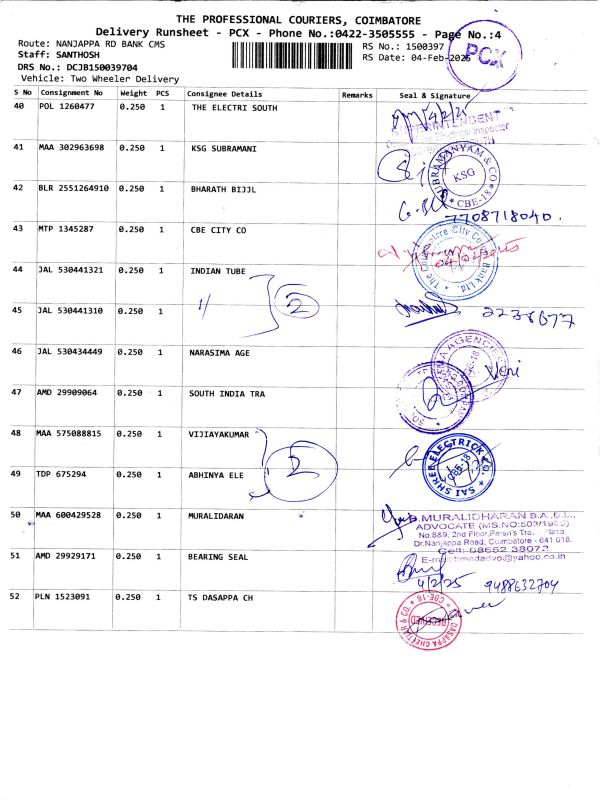 THE PROFESSIONAL COURIERS, COIMBATORE
Delivery Runsheet - PCX - Phone No.:0422-3505555 - Page No.:4
Route: NANJAPPA RD BANK CMS
RS No.: 1500397
Staff: SANTHOSH
RS Date: 04-Feb-2025
PCX
DRS No.: DCJB150039704
Vehicle: Two Wheeler Delivery
S No Consignment No Weight PCS Consignee Details Remarks Seal & Signature
40 POL 1260477 0.250 1 THE ELECTRI SOUTH
4/2/25
41 MAA 302963698 0.250 1 KSG SUBRAMANI
KSG
CBE-18
42 BLR 2551264910 0.250 1 BHARATH BIJJL
7708718040.
43 MTP 1345287 0.250 1 CBE CITY CO
44 JAL 530441321 0.250 1 INDIAN TUBE
2
45 JAL 530441310 0.250 1
2238677
46 JAL 530434449 0.250 1 NARASIMA AGE
Veni
47 AMD 29909064 0.250 1 SOUTH INDIA TRA
48 MAA 575088815 0.250 1 VIJIAYAKUMAR
2
SAI SHREE ELECTRICK CO.
49 TDP 675294 0.250 1 ABHINYA ELE
50 MAA 600429528 0.250 1 MURALIDARAN
B.MURALIDHARAN B.A.,B.L.,
ADVOCATE (MS.NO:503/1989)
No:889, 2nd Floor,
Dr.Nanjappa Road, Coimbatore - 641 018.
Cell: 98652 38072
51 AMD 29929171 0.250 1 BEARING SEAL
4/2/25 9488632704
52 PLN 1523091 0.250 1 TS DASAPPA CH
DASAPPA CHETTIAR & CO.
CBE-18
RECEIVED